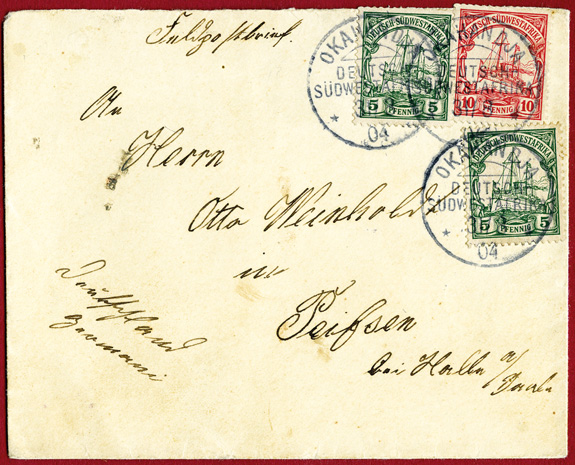 Feldpostbrief.
DEUTSCH-SÜDWESTAFRIKA
5 PFENNIG 5
DEUTSCH-SÜDWESTAFRIKA
10 PFENNIG 10
OKAHANDJA
DEUTSCH
SÜDWESTAFRIKA
04
An
Herrn
Otto Weinhold
DEUTSCH-SÜDWESTAFRIKA
5 PFENNIG 5
OKAHANDJA
DEUTSCH
SÜDWESTAFRIKA
04
in
bei Halle a/
Saale
Deutschland
Germani